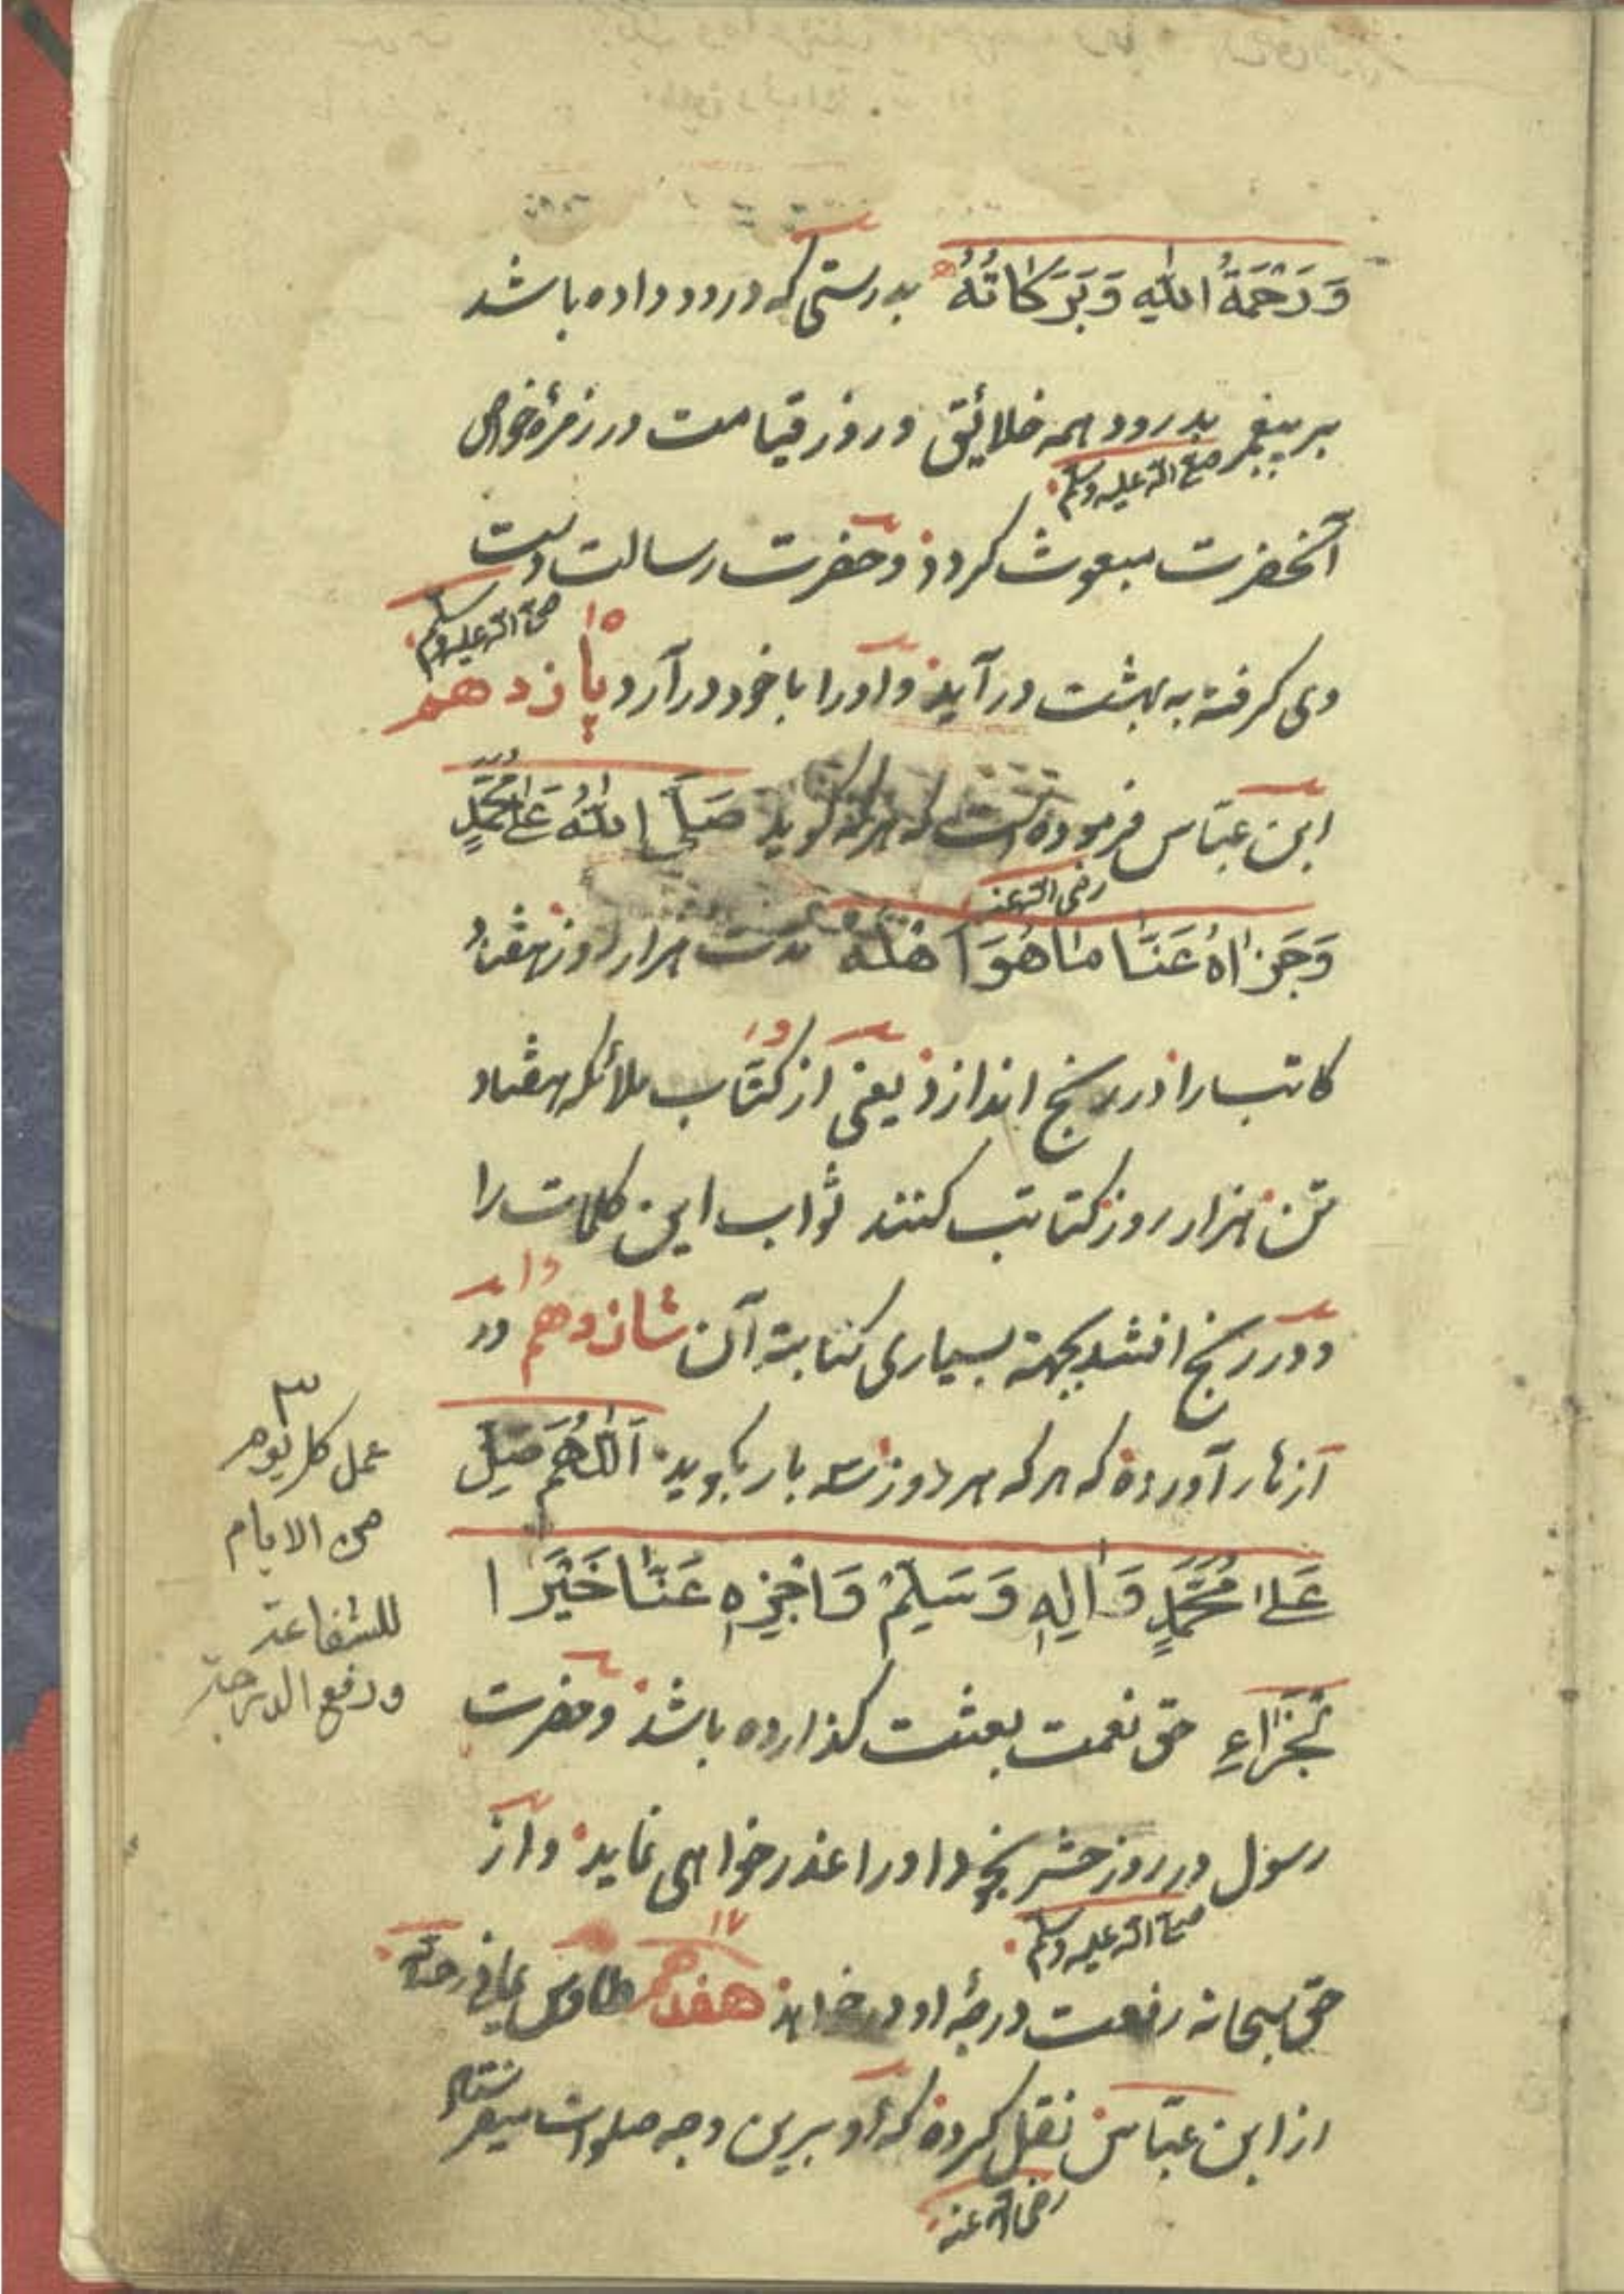 وَرَحْمَةُ اللهِ وَبَرَكَاتُهُ بدرستی که درود داده باشد
بر پیغمبر بدرود همه خلائق و روز قیامت در زمرهٔ خواص
صلی الله علیه وسلم
آنحضرت مبعوث کردد و حضرت رسالت دست
صلی الله علیه وسلم
وی کرفته به بهشت در آید و اورا با خود در آرد پانزدهم
۱۵
ابن عباس فرموده است که هر که کوید صَلَّى اللهُ عَلَى مُحَمَّدٍ
رضی الله عنه
وَجَزَاهُ عَنَّا مَا هُوَ اَهْلُهُ مدت هزار روز هفتاد
کاتب را در رنج اندازد یعنی از کتّاب ملائکه هفتاد
تن هزار روز کتابت کنند ثواب این کلمات را
و در رنج افتند بجهة بسیاری کتابة آن شانزدهم در
ازهار آورده که هر که هر روز سه بار بکوید اَللّٰهُمَّ صَلِّ
عَلٰى مُحَمَّدٍ وَاٰلِهٖ وَسَلِّمْ وَاجْزِهٖ عَنَّا خَيْرَ ا
لْجَزَاءِ حق نعمت بعثت کذارده باشد و حضرت
رسول در روز حشر بخود اورا عذر خواهی نماید و از
صلی الله علیه وسلم
حق سبحانه رفعت درجهٔ او در خواهد هفدهم طاوس یمانی رحمة
۱۷
از ابن عباس نقل کرده که او برین وجه صلوات میفرستاد
رضی الله عنه
۳
عمل کل یوم
من الایام
للشفاعة
ورفع الدرجة